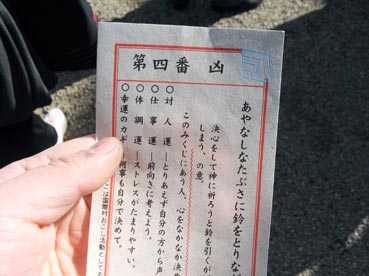 第四番 凶
あやなしなたぶさに鈴をとりなが
決心をして神に祈ろうと鈴を引くが
しまう、の意。
このみくじにあう人、心をなかなか決
○対人運―とりあえず自分の方から声
○仕事運―前向きに考えよう。
○体調運―ストレスがたまりやすい。
○幸運のカギ―何事も自分で決めて。
は国際村おこし活動として